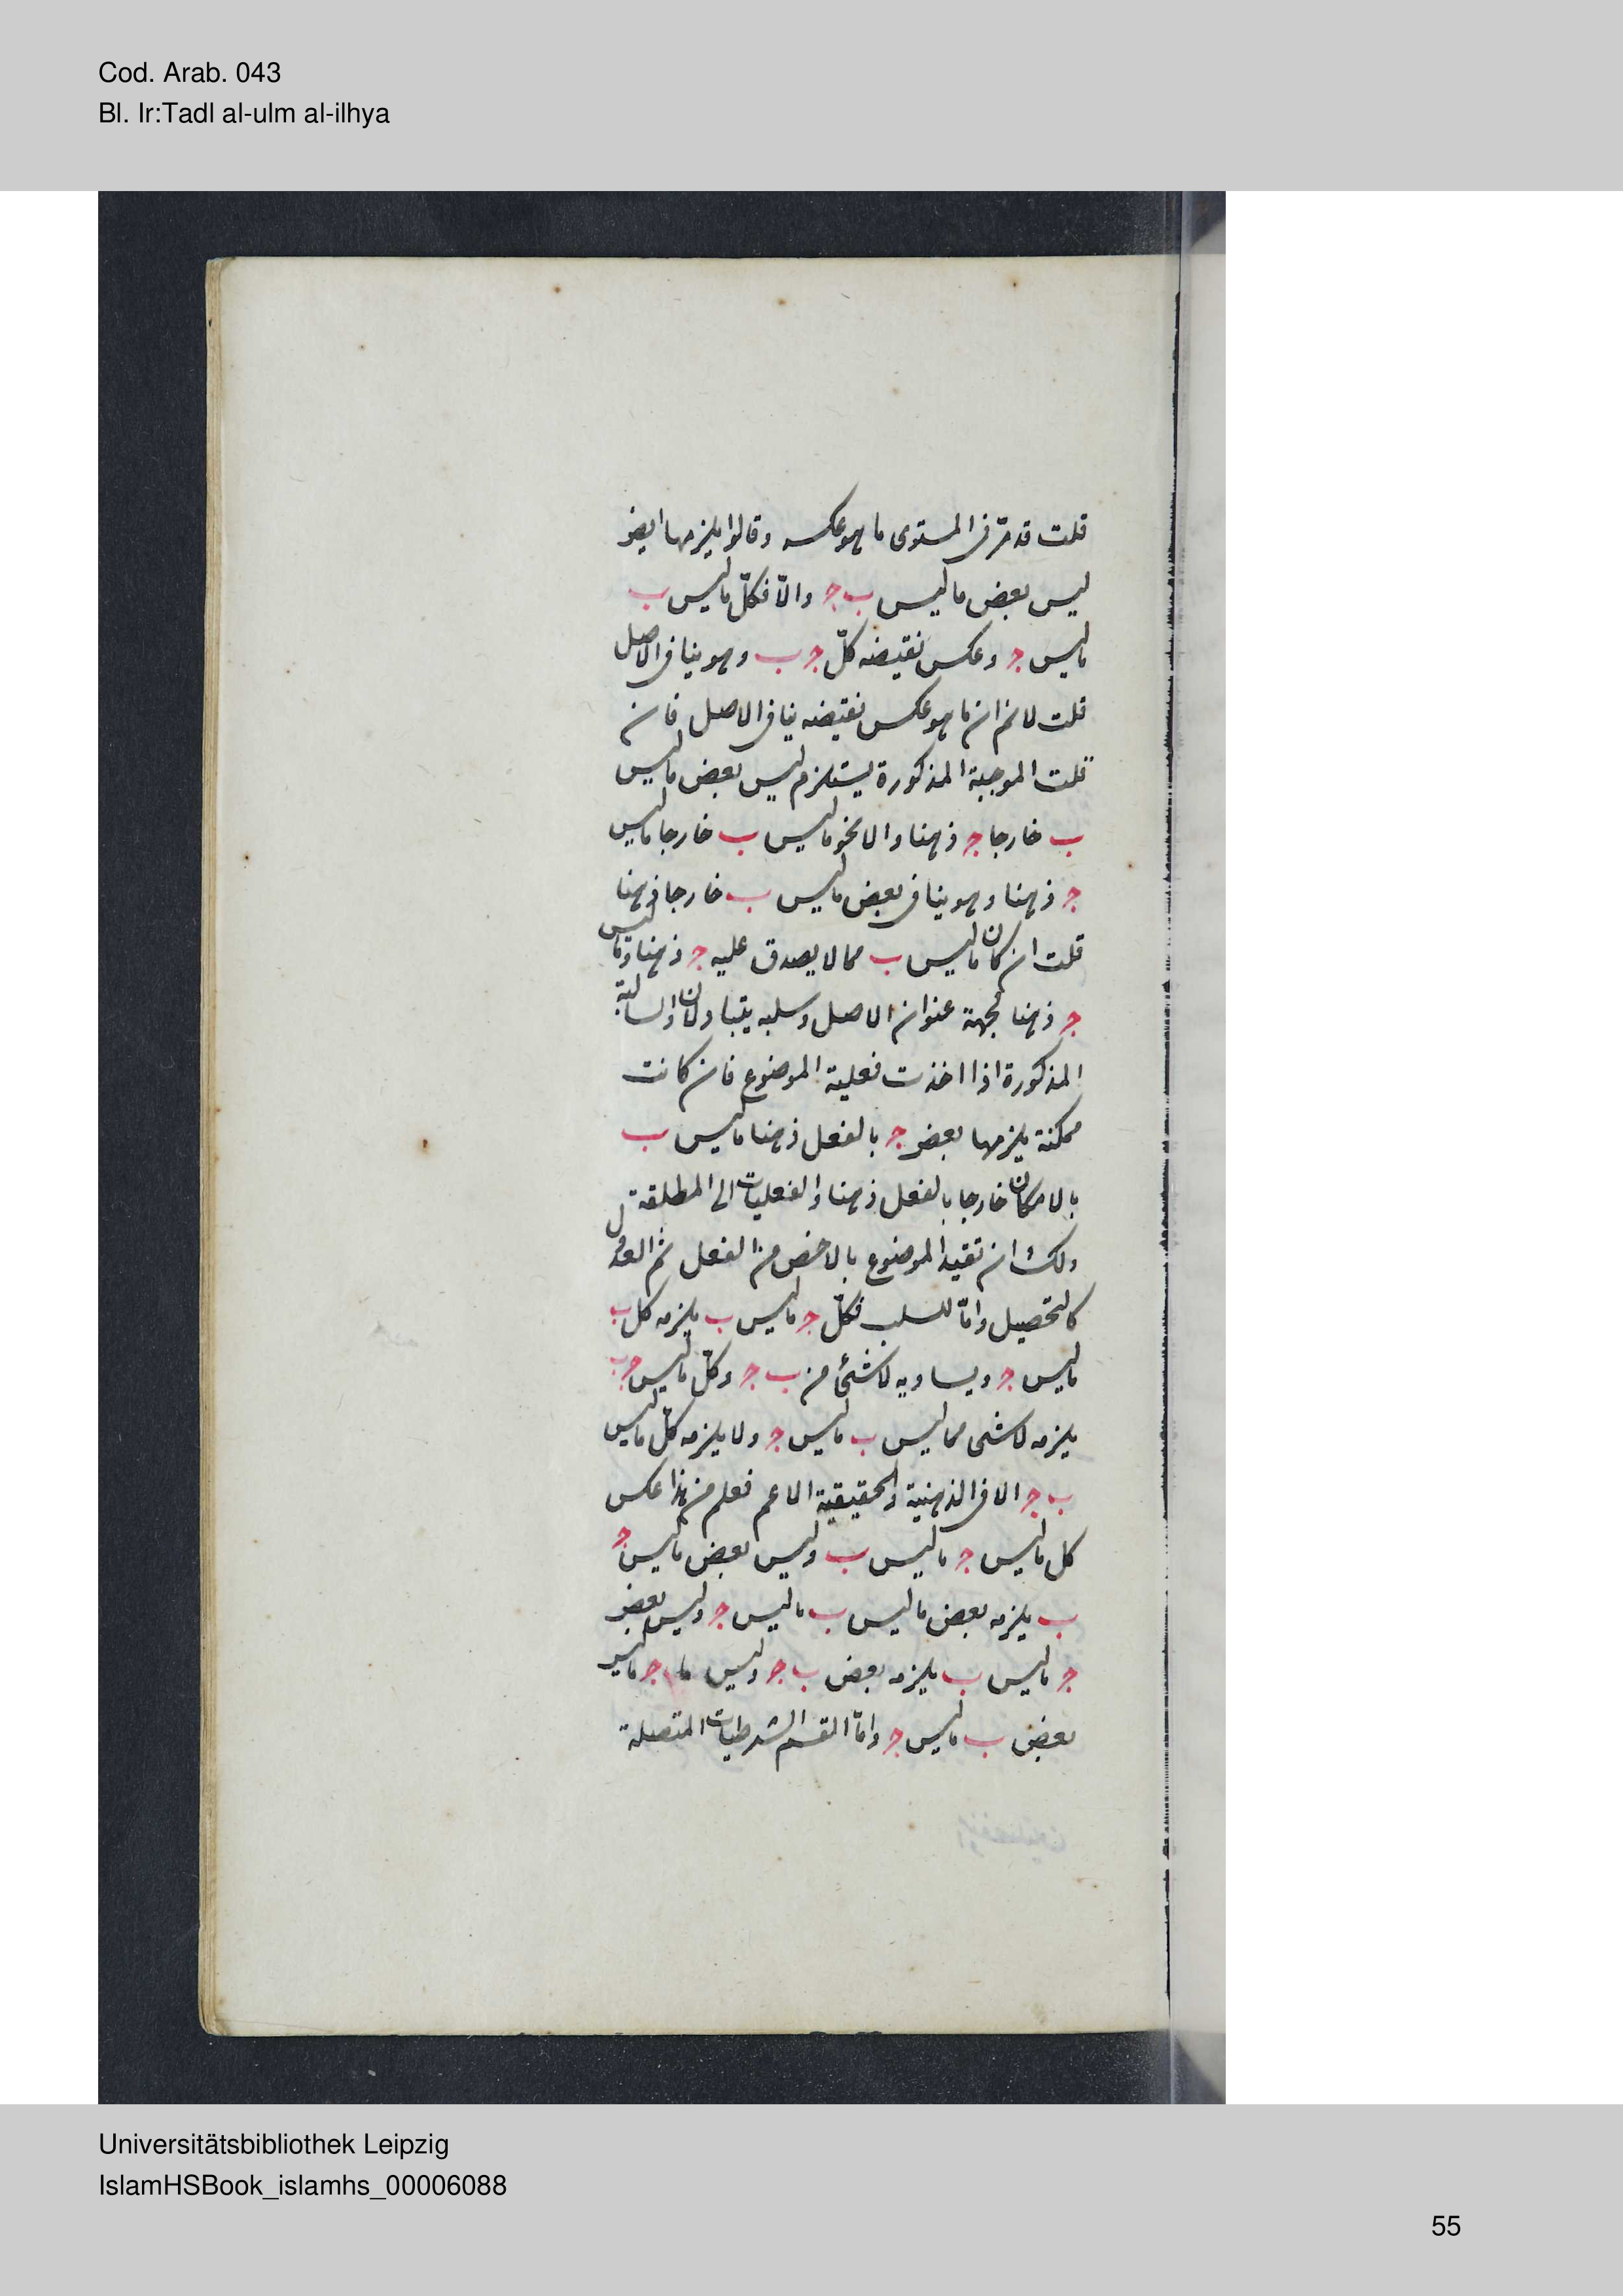 Cod. Arab. 043
Bl. Ir:Tadl al-ulm al-ilhya
قلت قد مرّ فى المستوى ما هو عكسه وقالوا يلزمها ايض
ليس بعض ما ليس ب ج والّا فكلّ ما ليس ب
ما ليس ج وعكس نقيضه كلّ ج ب وهو ينافى الاصل
قلت لا نم ان ما هو عكس نقيضه ينافى الاصل فان
قلت الموجبة المذكورة يستلزم ليس بعض ما ليس
ب خارجا ج ذهنا والا نحو ما ليس ب خارجا ما ليس
ج ذهنا وهو ينافى بعض ما ليس ب خارجا ذهنا
قلت ان كان ما ليس ب مما لا يصدق عليه ج ذهنا وما ليس
ج ذهنا لجهة عنوان الاصل وسلبه يتبادلان والسالبة
المذكورة اذا اخذت فعلية الموضوع فان كانت
ممكنة يلزمها بعض ج بالفعل ذهنا ما ليس ب
بالامكان خارجا بالفعل ذهنا والفعليات الى المطلقة
ولك ان تقيد الموضوع بالاخص من الفعل ثم العدول
كالتحصيل وامّا للسلب فكلّ ج ما ليس ب يلزمه كل ب
ما ليس ج ويساويه لا شئ من ب ج وكلّ ما ليس ج ب
يلزمه لا شى مما ليس ب ما ليس ج ولا يلزمه كلّ ما ليس
ب ج الا فى الذهنية والحقيقية الاعم فعلم من هذا عكس
كل ما ليس ج ما ليس ب وليس بعض ما ليس ج
ب يلزمه بعض ما ليس ب ما ليس ج وليس بعض
ج ما ليس ب يلزمه بعض ب ج وليس ما ج ما ليس
بعض ب ما ليس ج وامّا القسم الشرطيات المتصلة
Universitätsbibliothek Leipzig
IslamHSBook_islamhs_00006088
55